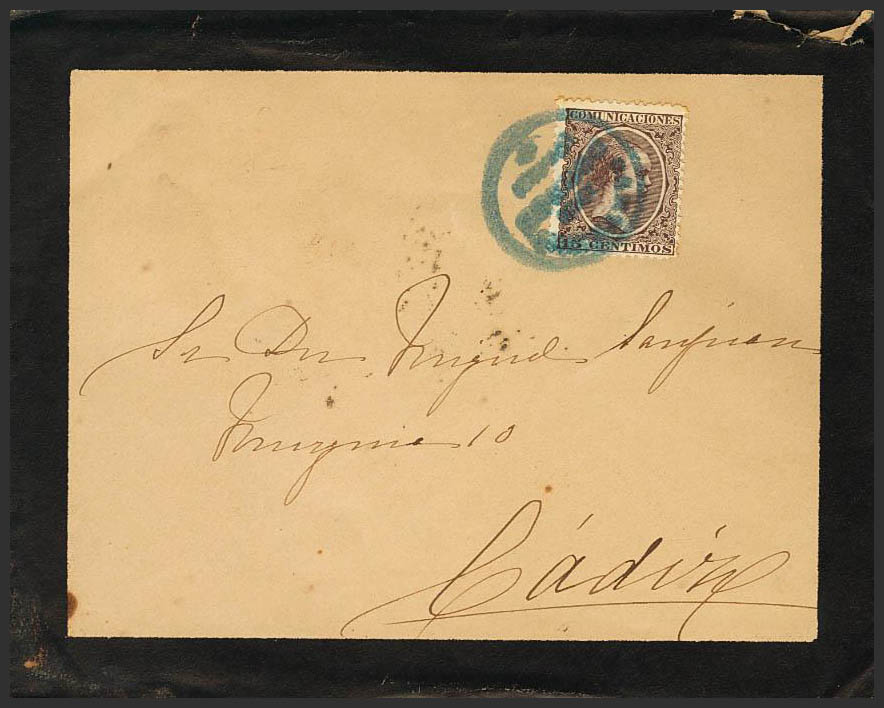 COMUNICACIONES
15 CENTIMOS
Sr Dn Miguel
10
Cádiz